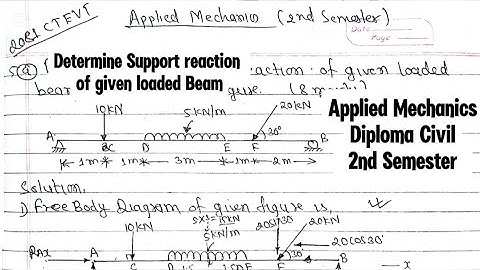 2081 CTEVT
Applied Mechanics (2nd Semester)
Date
Page
Determine Support reaction
of given loaded Beam
5(a)
action of given loaded
beam
figure. (8
Applied Mechanics
Diploma Civil
2nd Semester
10KN
5KN/m
20KN
A
30°
B
C
D
E
F
1m 1m 3m 1m 2m
Solution,
1) Free Body Diagram of given figure is,
10KN
5x3=15KN
5KN/m
20sin30
20KN
20cos30
RAx
A
30°
B
C
D
E
F
x